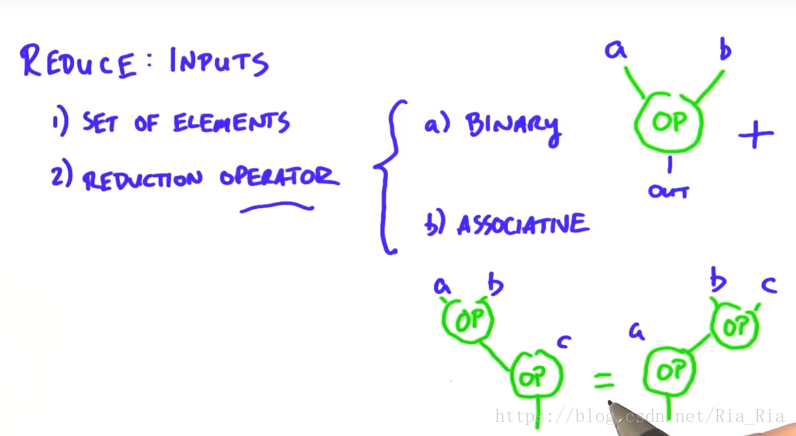 REDUCE: INPUTS
1) SET OF ELEMENTS
2) REDUCTION OPERATOR
a) BINARY
b) ASSOCIATIVE
a b
OP +
OUT
a b
OP
c
OP
=
b c
OP
a
OP
https://blog.csdn.net/Ria_Ria